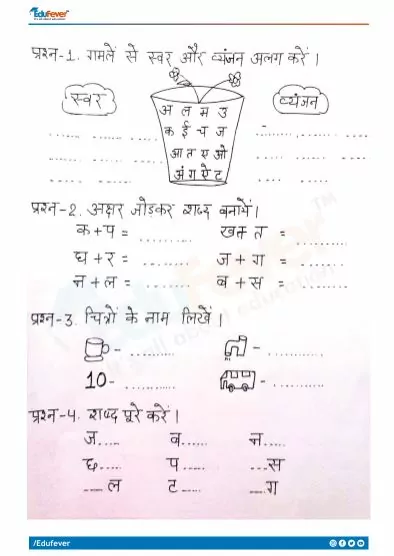 EduFever
प्रश्न-1. गमलें से स्वर और व्यंजन अलग करें।
स्वर
व्यंजन
अ ल म उ
क ई च ज
आ त ए ओ
अं ग ऐ ट
प्रश्न-2. अक्षर जोड़कर शब्द बनायें।
क+प = .......... खत त = ..........
घ+र = .......... ज+ग = ..........
न+ल = .......... ब+स = ..........
प्रश्न-3. चित्रों के नाम लिखें।
- .......... - ..........
10- .......... - ..........
प्रश्न-4. शब्द पूरे करें।
ज..... ब...... न.....
छ..... प ..... ....स
....ल ट ..... ....ग
/Edufever